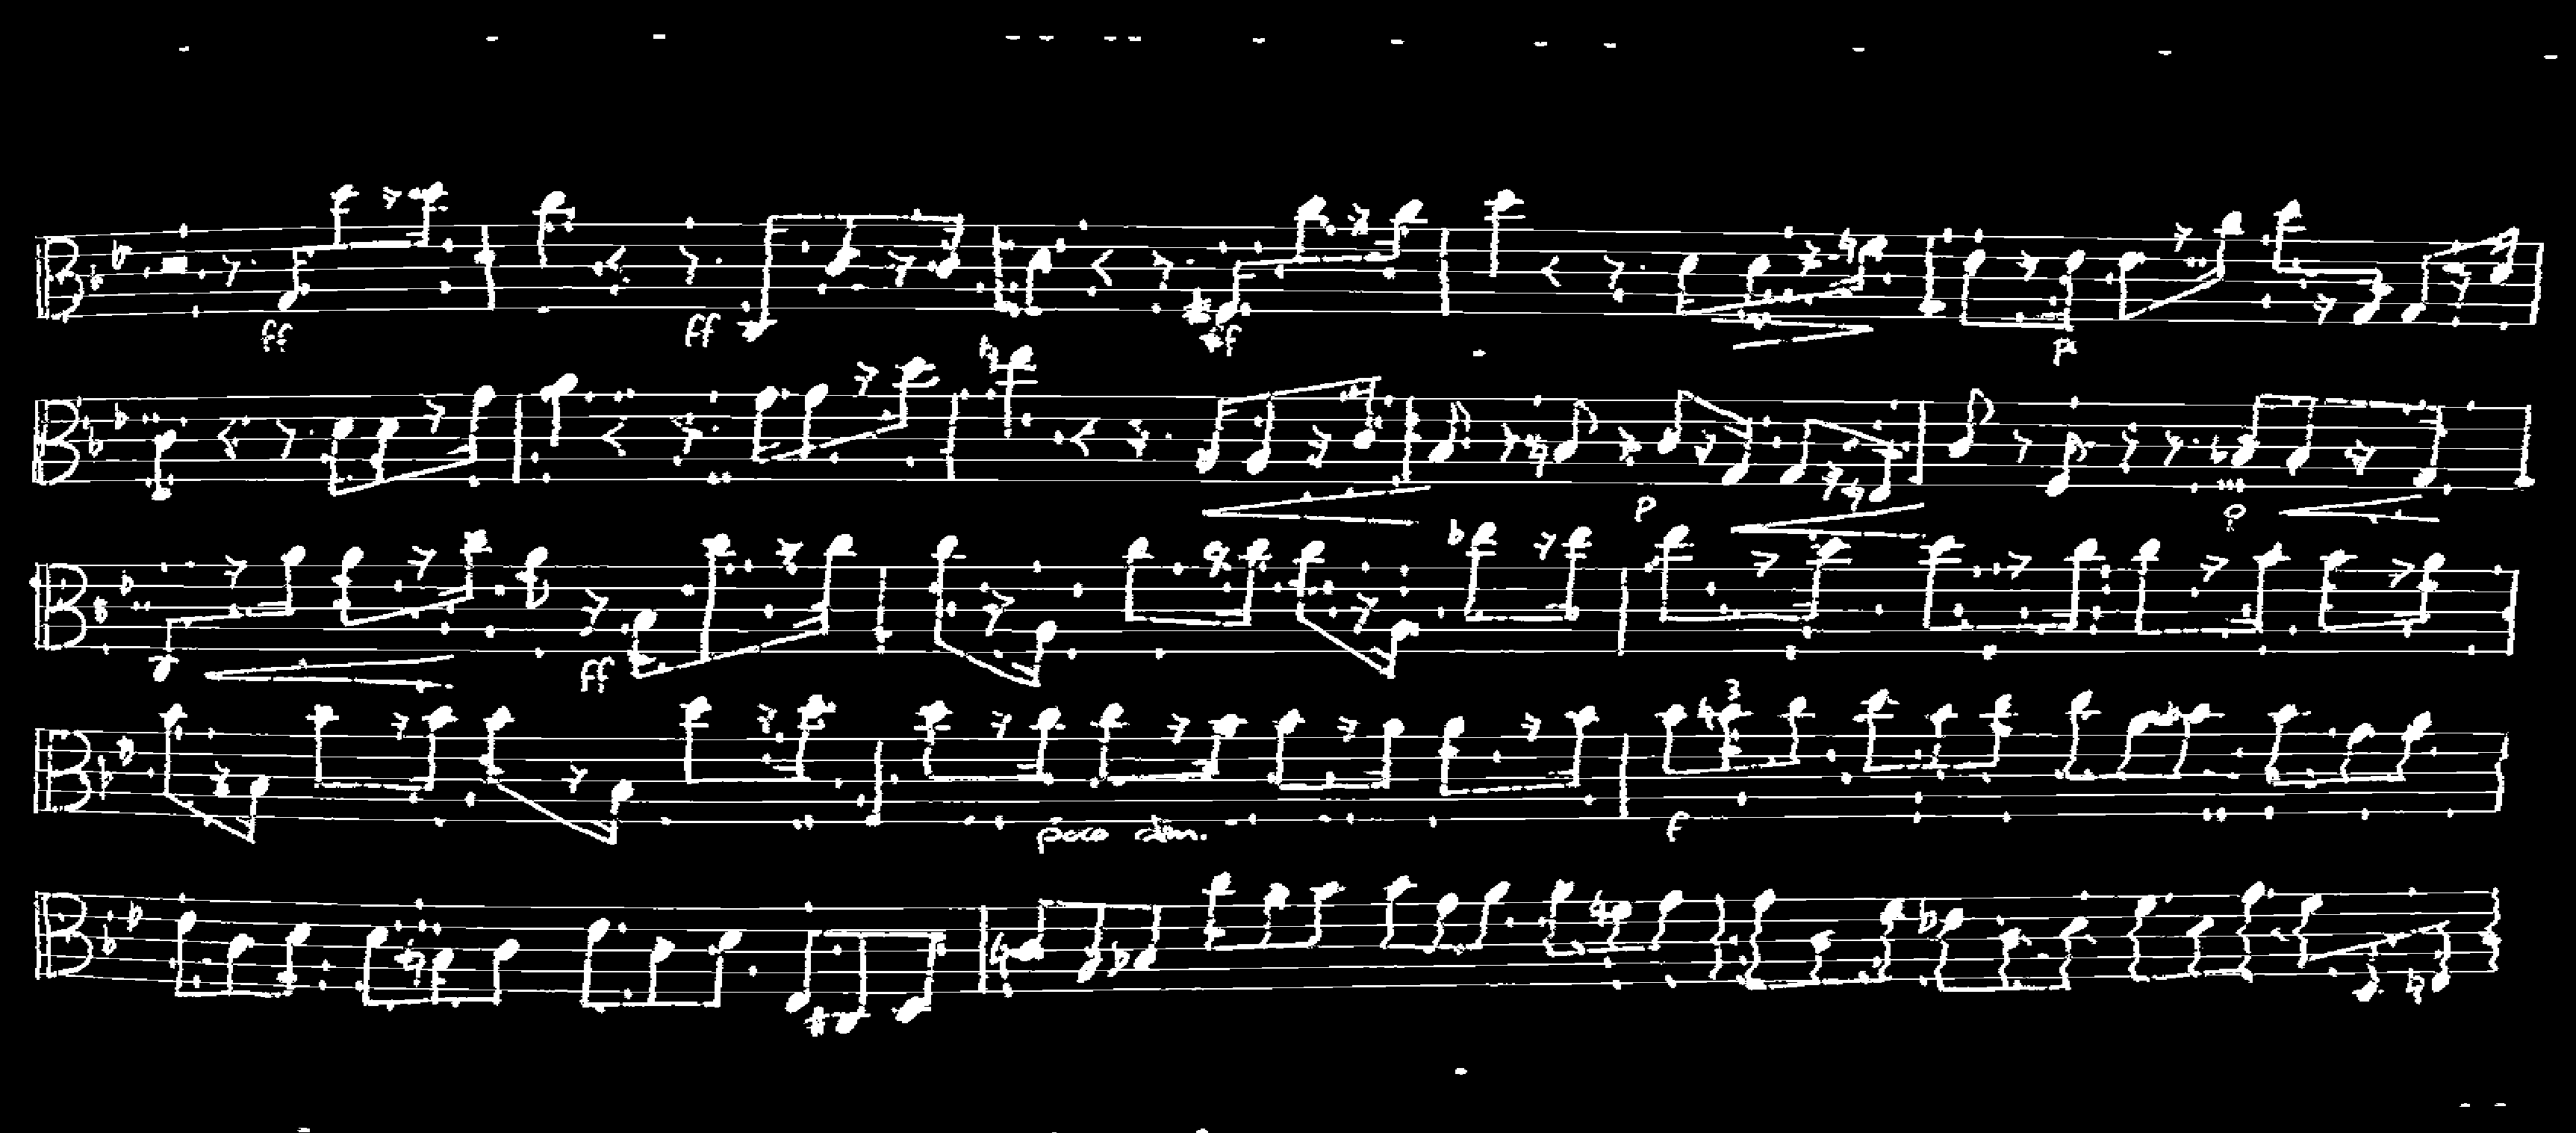 ff ff f
p
p p
ff
poco dim. 3 f